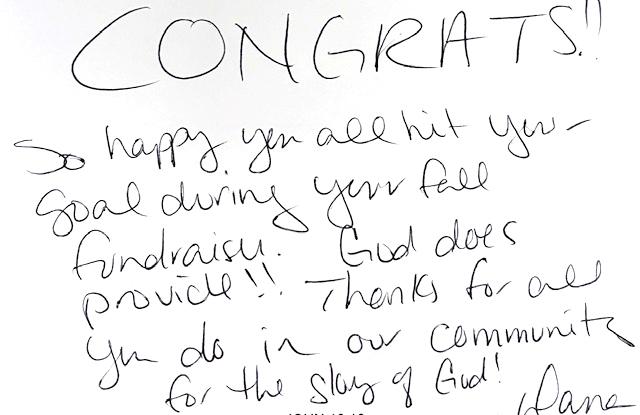 CONGRATS!!
So happy you all hit your
goal during your fall
fundraiser. God does
provide!! Thanks for all
you do in our community
for the glory of God!
Dana